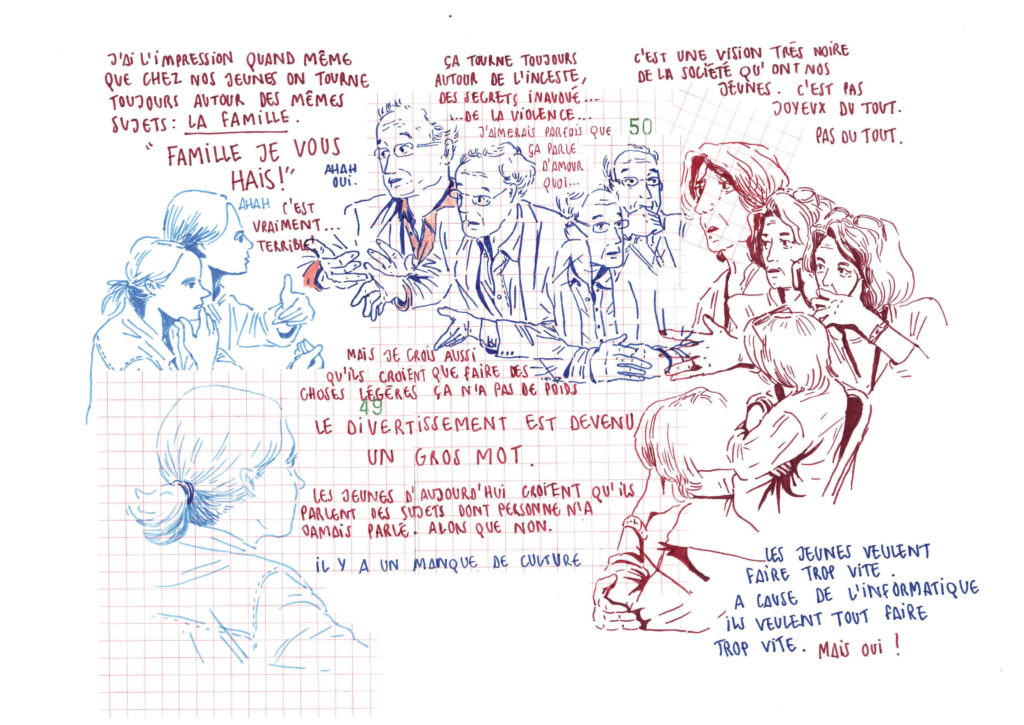 J'AI L'IMPRESSION QUAND MÊME
QUE CHEZ NOS JEUNES ON TOURNE
TOUJOURS AUTOUR DES MÊMES
SUJETS : LA FAMILLE.
"FAMILLE JE VOUS
HAIS!"
AHAH
OUI.
AHAH
C'EST
VRAIMENT...
TERRIBLE!
ÇA TOURNE TOUJOURS
AUTOUR DE L'INCESTE,
DES SECRETS INAVOUÉ...
...DE LA VIOLENCE...
J'AIMERAIS PARFOIS QUE
ÇA PARLE
D'AMOUR
QUOI...
50
C'EST UNE VISION TRÈS NOIRE
DE LA SOCIÉTÉ QU'ONT NOS
JEUNES. C'EST PAS
JOYEUX DU TOUT.
PAS DU TOUT.
MAIS JE CROIS AUSSI
QU'ILS CROIENT QUE FAIRE DES
CHOSES LÉGÈRES ÇA N'A PAS DE POIDS
49
LE DIVERTISSEMENT EST DEVENU
UN GROS MOT.
LES JEUNES D'AUJOURD'HUI CROIENT QU'ILS
PARLENT DES SUJETS DONT PERSONNE N'A
JAMAIS PARLÉ. ALORS QUE NON.
IL Y A UN MANQUE DE CULTURE
LES JEUNES VEULENT
FAIRE TROP VITE.
A CAUSE DE L'INFORMATIQUE
ILS VEULENT TOUT FAIRE
TROP VITE. MAIS OUI !